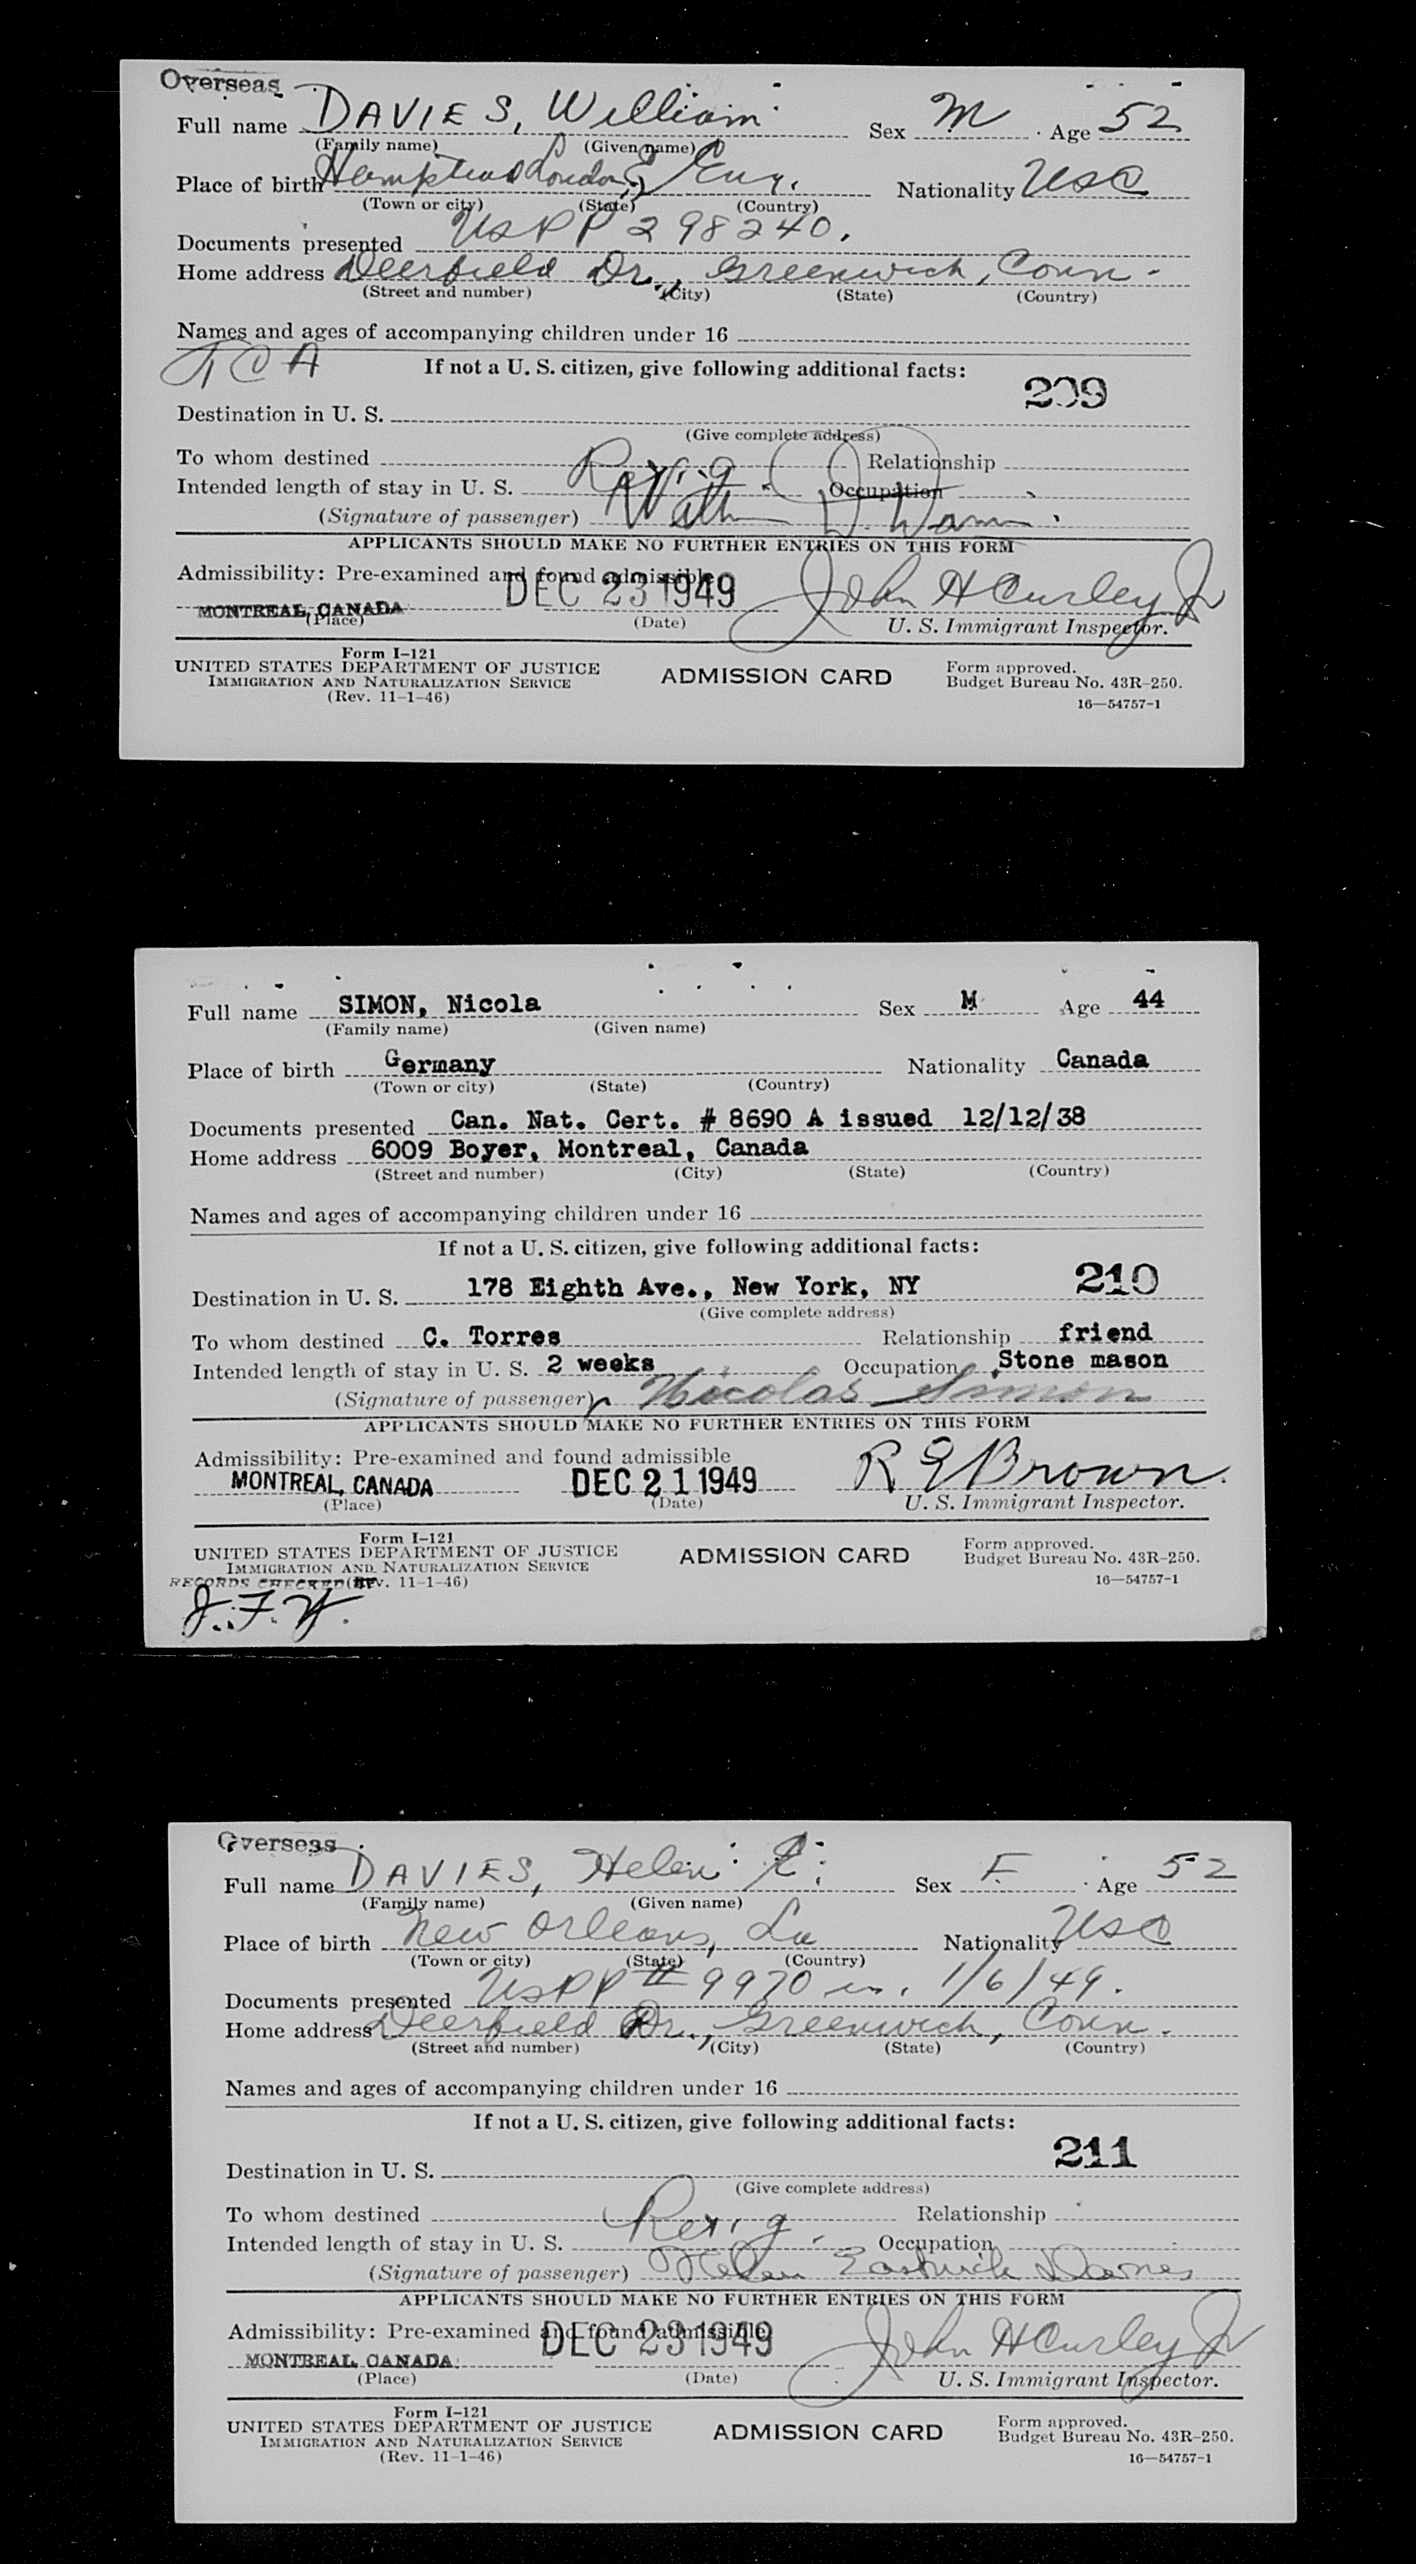 Overseas
Full name DAVIES, William Sex M Age 52
(Family name) (Given name)
Place of birth Hampstead London, Eng. Nationality USC
(Town or city) (State) (Country)
Documents presented USPP 298240.
Home address Deerfield Dr., Greenwich, Conn.
(Street and number) (City) (State) (Country)
Names and ages of accompanying children under 16
TCA If not a U. S. citizen, give following additional facts:
209
Destination in U. S.
(Give complete address)
To whom destined Relationship
Intended length of stay in U. S. Occupation
(Signature of passenger)
APPLICANTS SHOULD MAKE NO FURTHER ENTRIES ON THIS FORM
Admissibility: Pre-examined and found admissible
MONTREAL, CANADA DEC 23 1949 John H Curley Jr
(Place) (Date) U. S. Immigrant Inspector.
Form I-121
UNITED STATES DEPARTMENT OF JUSTICE
IMMIGRATION AND NATURALIZATION SERVICE
(Rev. 11-1-46)
ADMISSION CARD
Form approved.
Budget Bureau No. 43R-250.
16—54757-1
Full name SIMON, Nicola Sex M Age 44
(Family name) (Given name)
Place of birth Germany Nationality Canada
(Town or city) (State) (Country)
Documents presented Can. Nat. Cert. # 8690 A issued 12/12/38
Home address 6009 Boyer, Montreal, Canada
(Street and number) (City) (State) (Country)
Names and ages of accompanying children under 16
If not a U. S. citizen, give following additional facts:
210
Destination in U. S. 178 Eighth Ave., New York, NY
(Give complete address)
To whom destined C. Torres Relationship friend
Intended length of stay in U. S. 2 weeks Occupation Stone mason
(Signature of passenger) Nicolas Simon
APPLICANTS SHOULD MAKE NO FURTHER ENTRIES ON THIS FORM
Admissibility: Pre-examined and found admissible
MONTREAL, CANADA DEC 21 1949 R E Brown
(Place) (Date) U. S. Immigrant Inspector.
Form I-121
UNITED STATES DEPARTMENT OF JUSTICE
IMMIGRATION AND NATURALIZATION SERVICE
RECORDS CHECKED (Rev. 11-1-46)
J. F. Y.
ADMISSION CARD
Form approved.
Budget Bureau No. 43R-250.
16—54757-1
Overseas
Full name DAVIES, Helen E. Sex F Age 52
(Family name) (Given name)
Place of birth New Orleans, La Nationality USC
(Town or city) (State) (Country)
Documents presented USPP # 9970 iss. 1/6/49.
Home address Deerfield Dr., Greenwich, Conn.
(Street and number) (City) (State) (Country)
Names and ages of accompanying children under 16
If not a U. S. citizen, give following additional facts:
211
Destination in U. S.
(Give complete address)
To whom destined Relationship
Intended length of stay in U. S. Occupation
(Signature of passenger) Helen Eastwick Davies
APPLICANTS SHOULD MAKE NO FURTHER ENTRIES ON THIS FORM
Admissibility: Pre-examined and found admissible
MONTREAL, CANADA DEC 23 1949 John H Curley Jr
(Place) (Date) U. S. Immigrant Inspector.
Form I-121
UNITED STATES DEPARTMENT OF JUSTICE
IMMIGRATION AND NATURALIZATION SERVICE
(Rev. 11-1-46)
ADMISSION CARD
Form approved.
Budget Bureau No. 43R-250.
16—54757-1